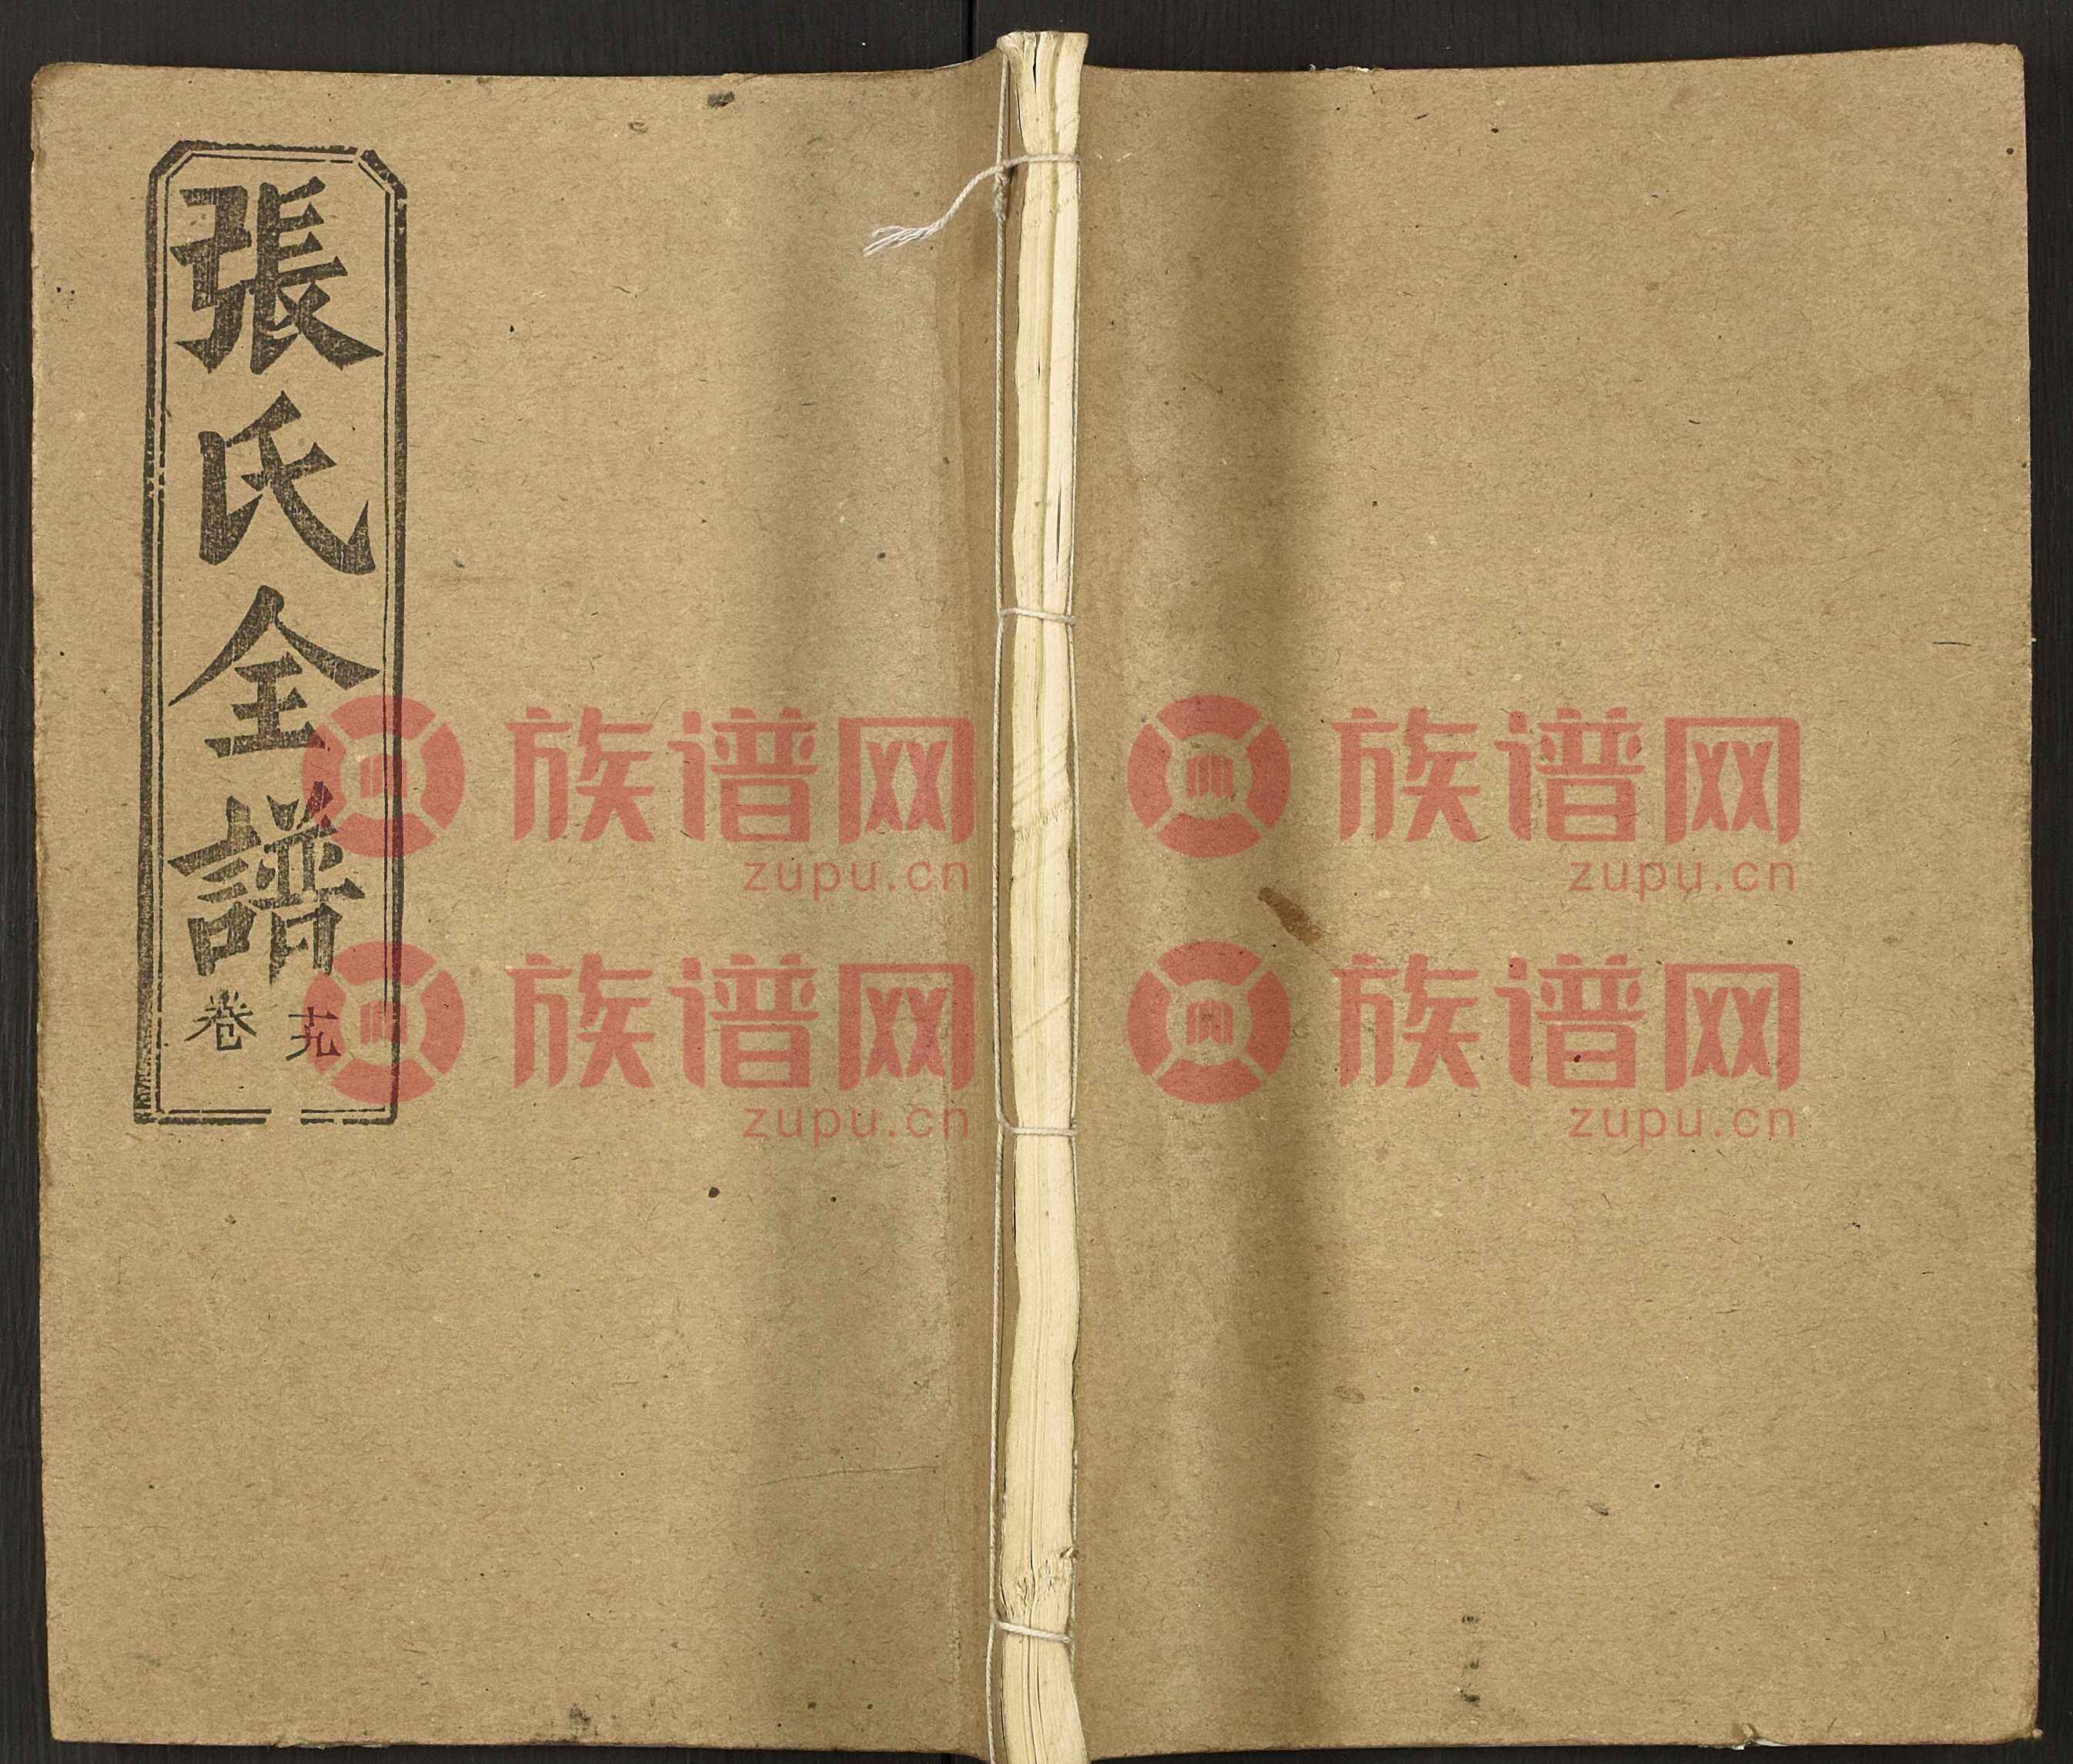 張氏全譜
卷 十九
族谱网
zupu.cn
族谱网
zupu.cn
族谱网
zupu.cn
族谱网
zupu.cn